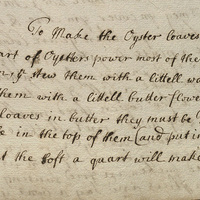 To Make the Oyster loaves
art of Oysters power most of the
n, & stew them with a littell wa
hem with a littell butter flower
loaves in butter they must be
e in the top of them (and put in
t the soft a quart will make